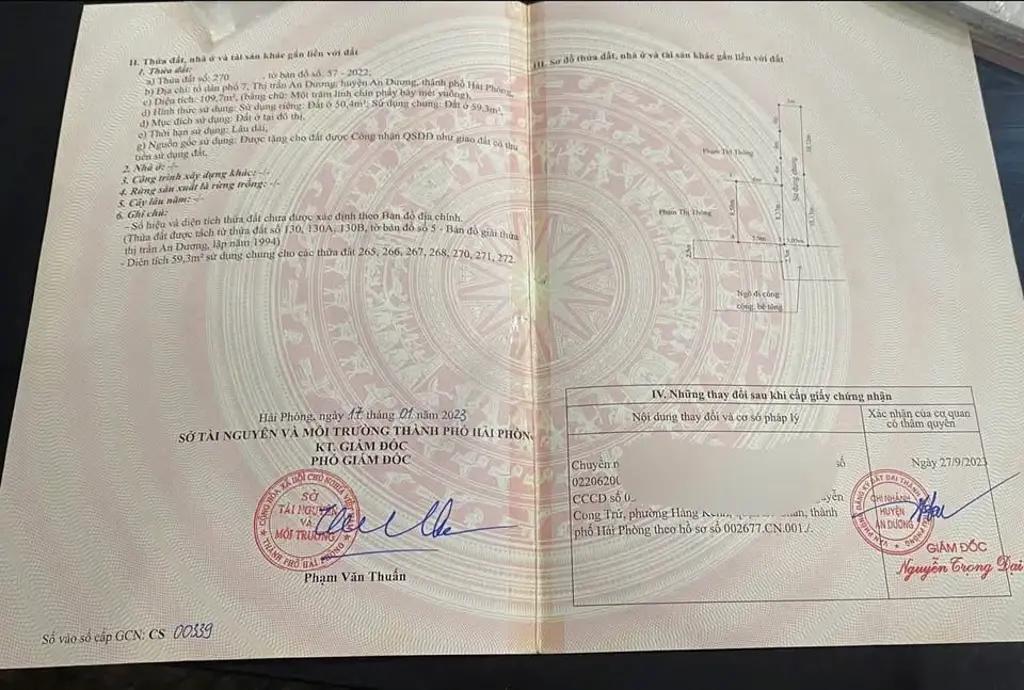 II. Thửa đất, nhà ở và tài sản khác gắn liền với đất
1. Thửa đất:
a) Thửa đất số: 270 , tờ bản đồ số: 37 - 2022,
b) Địa chỉ: tổ dân phố 7, Thị trấn An Dương, huyện An Dương, thành phố Hải Phòng,
c) Diện tích: 109,7m², (bằng chữ: Một trăm linh chín phẩy bảy mét vuông),
d) Hình thức sử dụng: Sử dụng riêng: Đất ở 50,4m²; Sử dụng chung: Đất ở 59,3m²,
đ) Mục đích sử dụng: Đất ở tại đô thị,
e) Thời hạn sử dụng: Lâu dài,
g) Nguồn gốc sử dụng: Được tặng cho đất được Công nhận QSDĐ như giao đất có thu
tiền sử dụng đất.
2. Nhà ở: -/-
3. Công trình xây dựng khác: -/-
4. Rừng sản xuất là rừng trồng: -/-
5. Cây lâu năm: -/-
6. Ghi chú:
- Số hiệu và diện tích thửa đất chưa được xác định theo Bản đồ địa chính.
(Thửa đất được tách từ thửa đất số 130, 130A, 130B, tờ bản đồ số 5 - Bản đồ giải thửa
thị trấn An Dương, lập năm 1994)
- Diện tích 59,3m² sử dụng chung cho các thửa đất 265, 266, 267, 268, 270, 271, 272.
Hải Phòng, ngày 17 tháng 01 năm 2023
SỞ TÀI NGUYÊN VÀ MÔI TRƯỜNG THÀNH PHỐ HẢI PHÒNG
KT. GIÁM ĐỐC
PHÓ GIÁM ĐỐC
CỘNG HÒA XÃ HỘI CHỦ NGHĨA
SỞ
TÀI NGUYÊN
VÀ
MÔI TRƯỜNG
THÀNH PHỐ HẢI PHÒNG
Phạm Văn Thuấn
Số vào sổ cấp GCN: CS 00339
III. Sơ đồ thửa đất, nhà ở và tài sản khác gắn liền với đất
Phạm Thị Thông
Sử dụng chung
Phạm Thị Thông
Ngõ đi công
cộng, bê tông
IV. Những thay đổi sau khi cấp giấy chứng nhận
Nội dung thay đổi và cơ sở pháp lý
Xác nhận của cơ quan
có thẩm quyền
Chuyển số
02206200
CCCD số
Công Trứ, phường Hàng thành
phố Hải Phòng theo hồ sơ số 002677.CN.001./.
Ngày 27/9/2023
CHI NHÁNH
HUYỆN
AN DƯƠNG
GIÁM ĐỐC
Nguyễn Trọng Đại